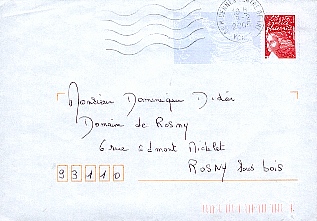 Monsieur Dominique Didier
Domaine de Rosny
6 rue Edmont Michelet
ROSNY sous bois
93110